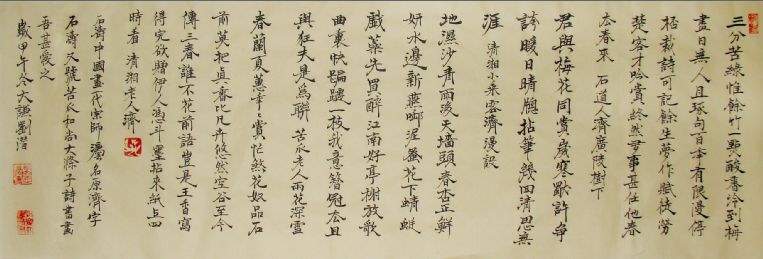 三分苦綠惟餘竹一點酸香冷到梅
盡日無人且琢句百年有限漫停
杯裁詩可記餘生夢作賦徒勞
楚客才吟賞終然事甚任他春
去春來 石道人濟廣陵樹下
君與梅花同賞歲寒歡許爭
誇暖日晴牕拈筆幾回清思無
涯 清湘小乘客濟漫設
地濕沙青雨後天墻頭春杏正鮮
妍水邊新燕啣泥花下蜻蜓
戲藥先醉江南好亭榭放歌
曲裏快蹁躚一枝我意簪冠且
與狂夫是為聯 苦瓜老人雨花深雪
春蘭夏蕙幸之賞忙煞花奴品石
前莫把真香比凡卉悠然空谷至今
傳三春誰不花前語豈是王香寫
得完欲贈伊人馮斗墨拈來紙上四
時看 清湘老人濟
石濤中國畫代宗師 濤名原濟字
石濤又號苦瓜和尚大滌子詩書畫
吾甚愛之
歲甲午冬大謙劉潛